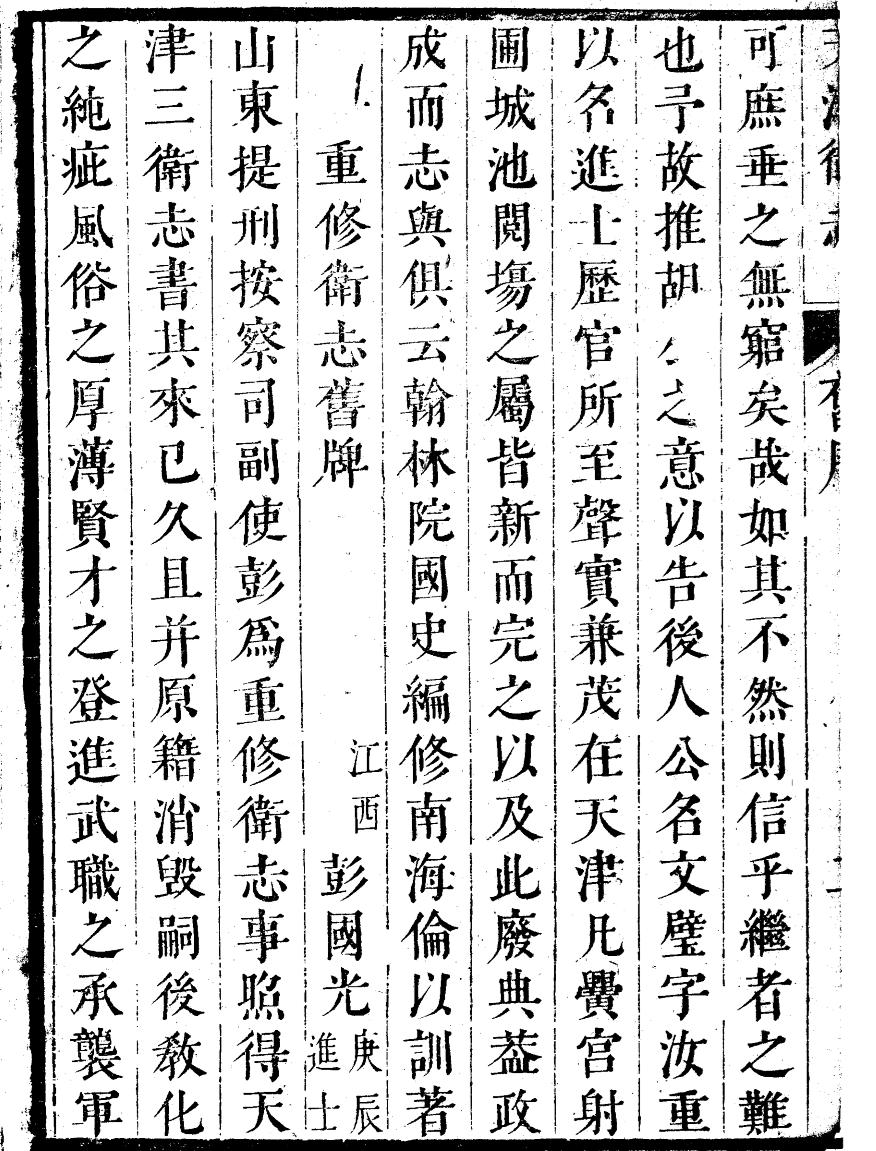 可庶垂之無窮矣哉如其不然則信乎繼者之難
也予故推胡公之意以告後人公名文璧字汝重
以名進士歷官所至聲實兼茂在天津凡黌宮射
圃城池閱塲之屬皆新而完之以及此廢典葢政
成而志與俱云翰林院國史編修南海倫以訓著
重修衛志舊牌 江西 彭國光 庚辰進士
山東提刑按察司副使彭爲重修衛志事照得天
津三衛志書其來已久且并原籍消毀嗣後教化
之純疵風俗之厚薄賢才之登進武職之承襲軍